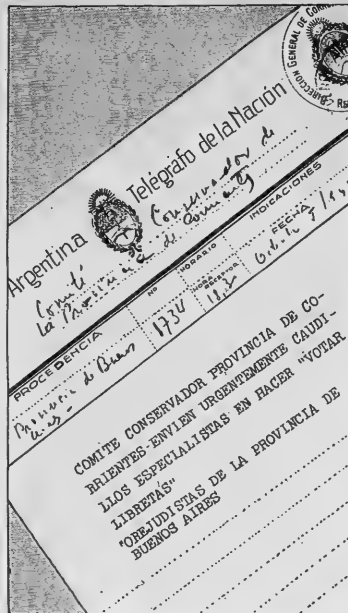 DIRECCION GENERAL DE CORR
Argentina Telégrafo de la Nación
Comité Conservador de
la Provincia de
PROCEDENCIA Nº HORARIO INDICACIONES
FECHA
Provincia de Buenos 1734 18,2
COMITE CONSERVADOR PROVINCIA DE CO-
RRIENTES ENVIEN URGENTEMENTE CAUDI-
LLOS ESPECIALISTAS EN HACER "VOTAR
LIBRETAS"
"OREJUDISTAS DE LA PROVINCIA DE
BUENOS AIRES